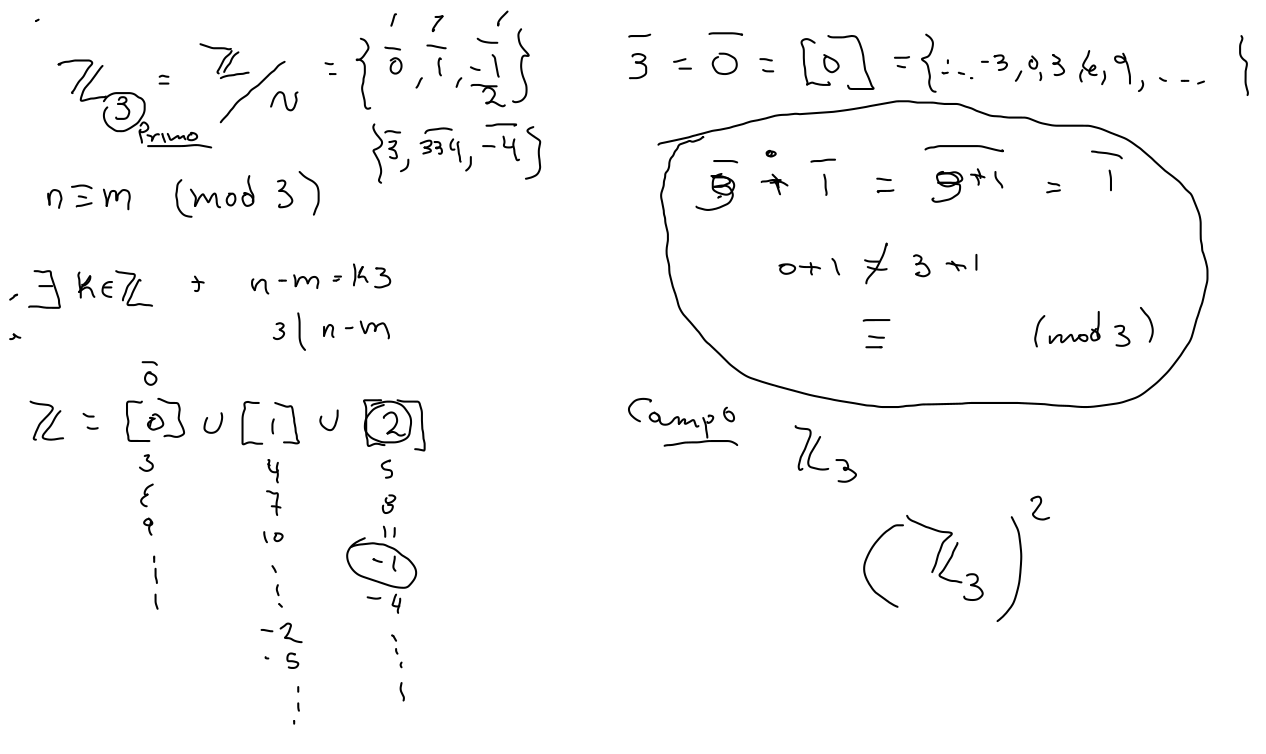 ℤ₃ = ℤ/~ = { 0̅, 1̅, -1̅, 2̅ }
Primo
{ 3̅, 334̅, -4̅ }
n ≡ m (mod 3)
∃ K ∈ ℤ + n-m = K3
3 | n-m
0̅
ℤ = [0] ∪ [1] ∪ [2]
3 4 5
6 7 8
9 10 11
-1
-4
-2
-5
3̅ = 0̅ = [0] = {... -3, 0, 3, 6, 9, .... }
+ 1̅ = +1 = 1̅
0+1 ≠ 3+1
≡ (mod 3)
Campo
ℤ₃
(ℤ₃)²